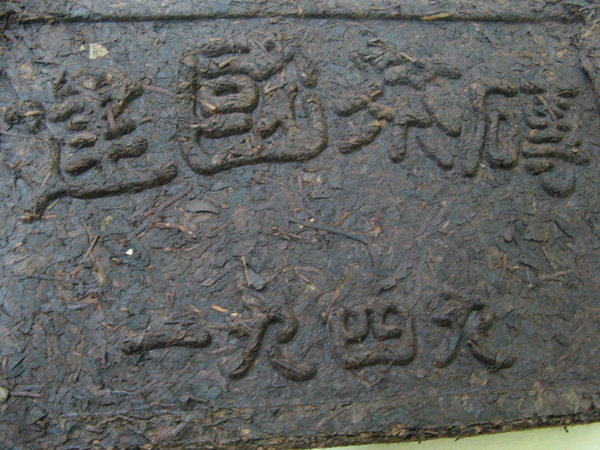 建國茶磚
一九四九